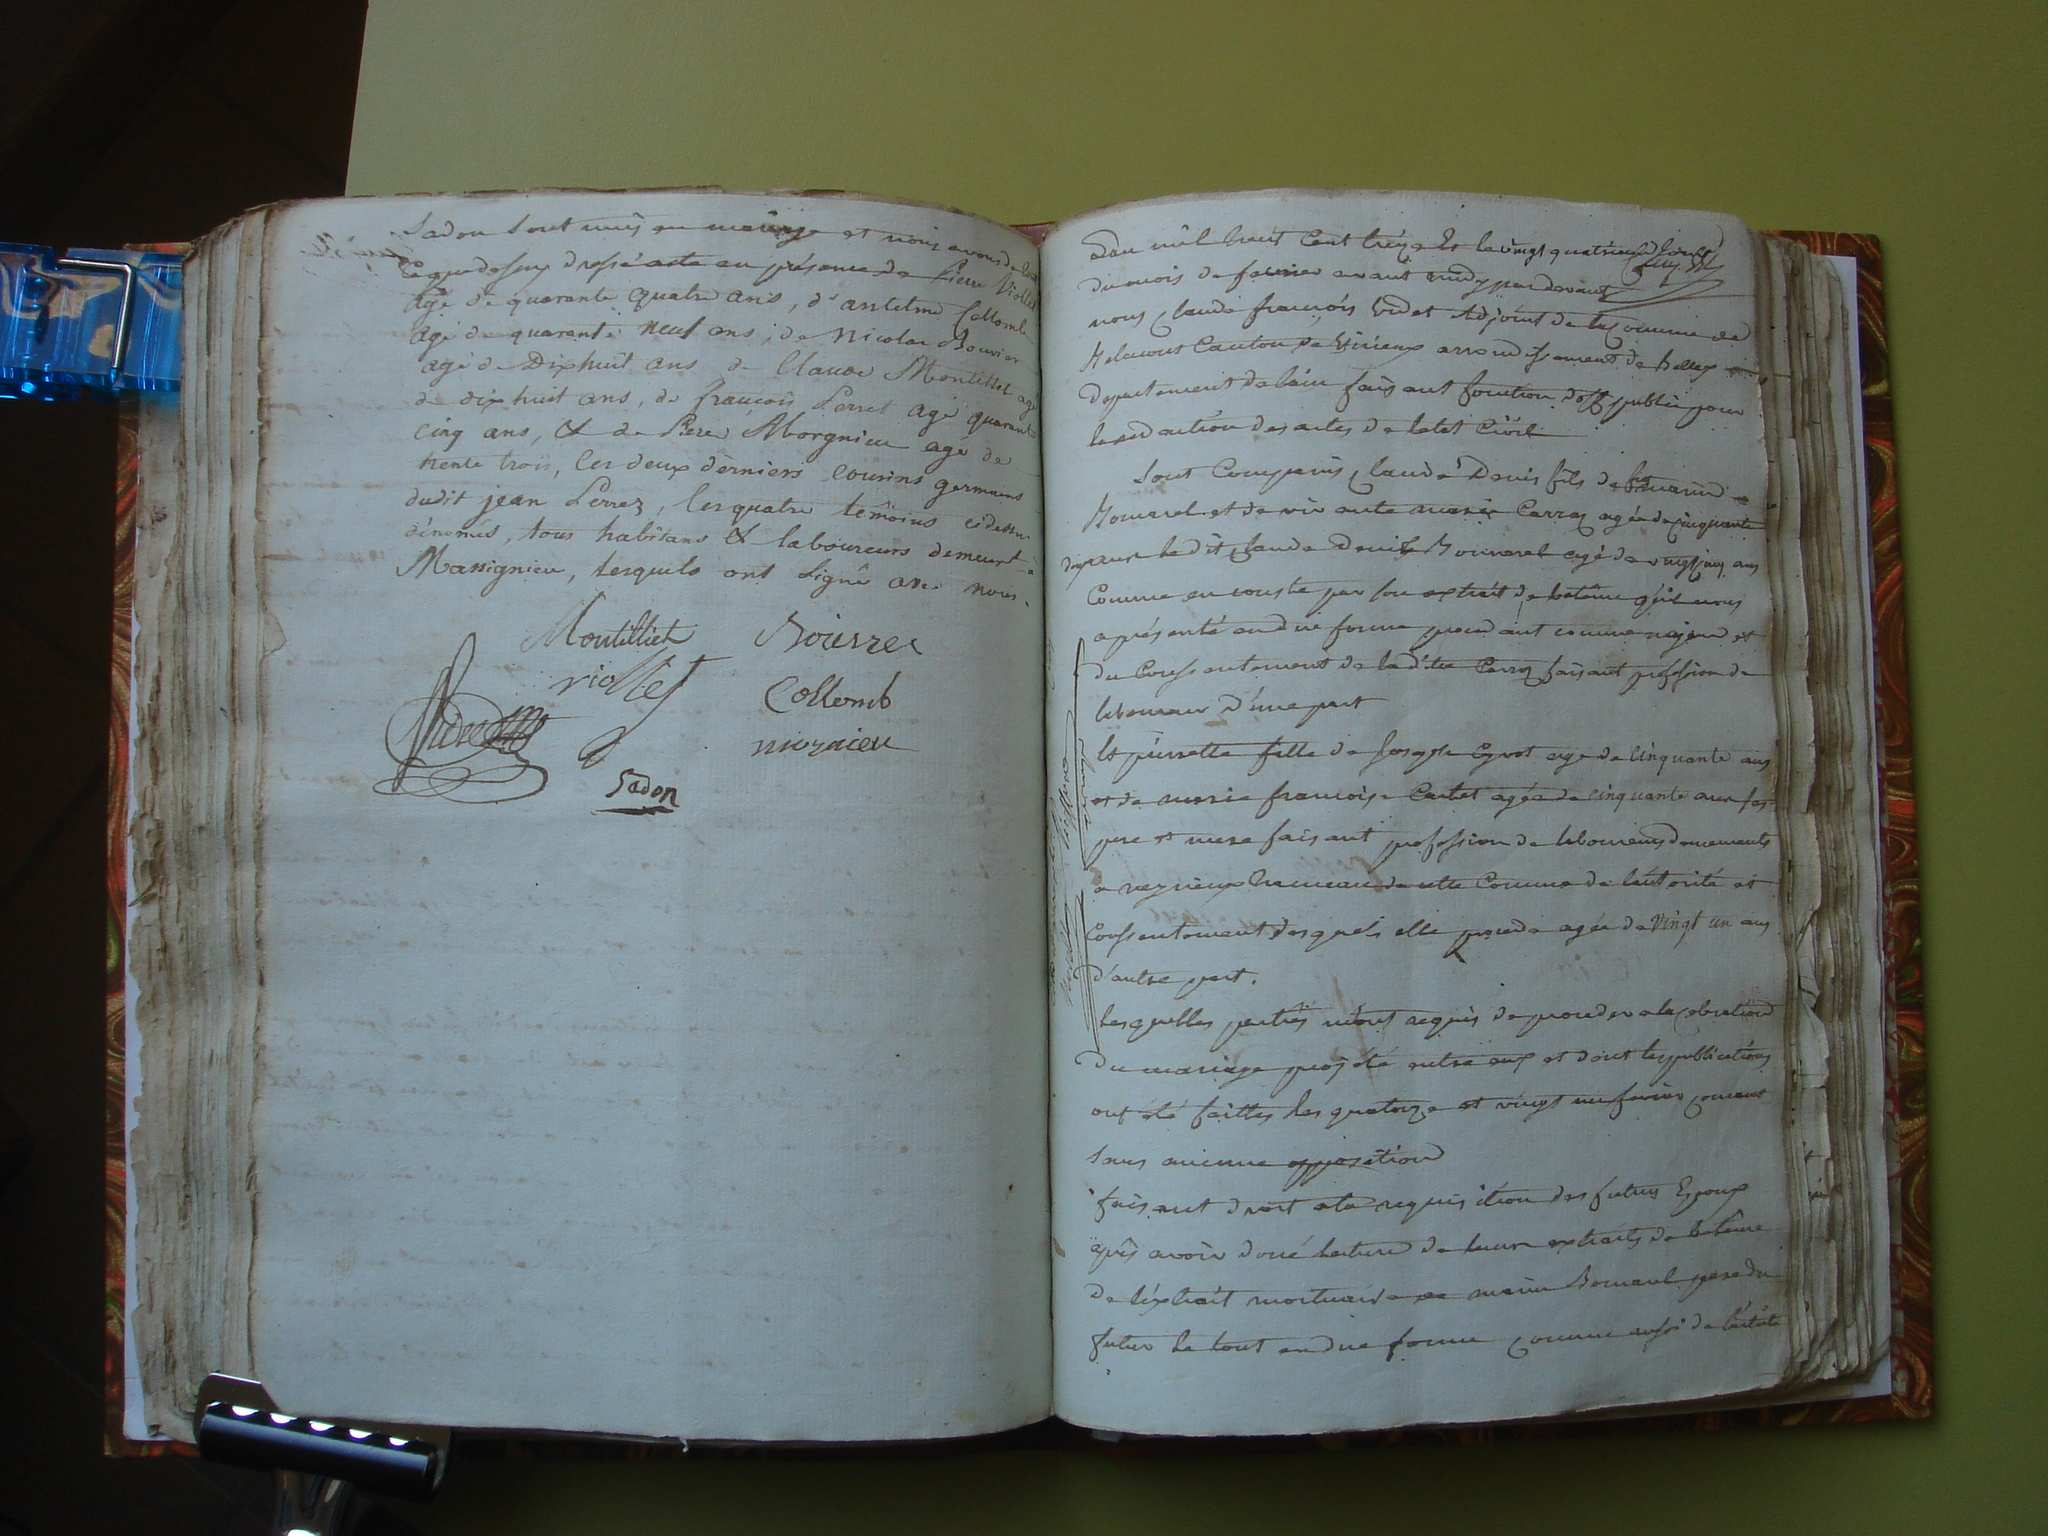 Sadon sont unis en mariage et nous avons de tout
ce que dessus dressé acte en présence de Pierre Viollet
agé de quarante quatre ans, d'antelme Collomb
agé de quarante neuf ans, de Nicolas Bouvier
agé de Dix huit ans de Claude Montillet agé
de dix huit ans, de françois Perret agé quarante
cinq ans, & de Piere Morgnieu agé de
trente trois, les deux dèrniers cousins germains
dudit jean Perret, les quatre temoins cidessus
dénomés, tous habitans & laboureurs demeurt à
Massignieu, lesquels ont signé avec nous.
Montilliet
viollet Collomb
mornieu
Sadon
Lan mil huit Cent treize Et le vingt quatrieme Jour
du mois de fevrier avant midy pardevant
nous Claude françois Adjoint de la Commune de
Canton de Virieux arrondissement de Belley
departement de lain faisant fonction doff. public pour
la redaction des actes de letat Civil
Sont Comparus Claude Denis fils de marin
et de vivante marie Carraz agée de cinquante
ledit Claude Denis agé de vingt cinq ans
Comme en conste par son extrait de batême qu'il nous
a présenté en due forme procedant comme majeur et
du Consentement de la dite Carraz faisant profession de
laboureur d'une part
Et pierrette fille de Joseph agé de Cinquante ans
et de marie françoise Cartet agée de cinquante ans ses
pere et mere faisant profession de laboureurs demeurants
a hameau de cette Commune de lautorité et
Consentement desquels elle procede agée de Vingt un ans
d'autre part.
lesquelles parties m'ont requis de proceder a la Celebration
du mariage projeté entre eux et dont les publications
ont été faittes les quatorze et vingt un fevrier courant
sans aucune opposition
faisant droit a la requisition des futurs Epoux
après avoir doné lecture de leurs extraits de batême
de l'extrait mortuaire de marin pere du
futur le tout en due forme comme aussi de